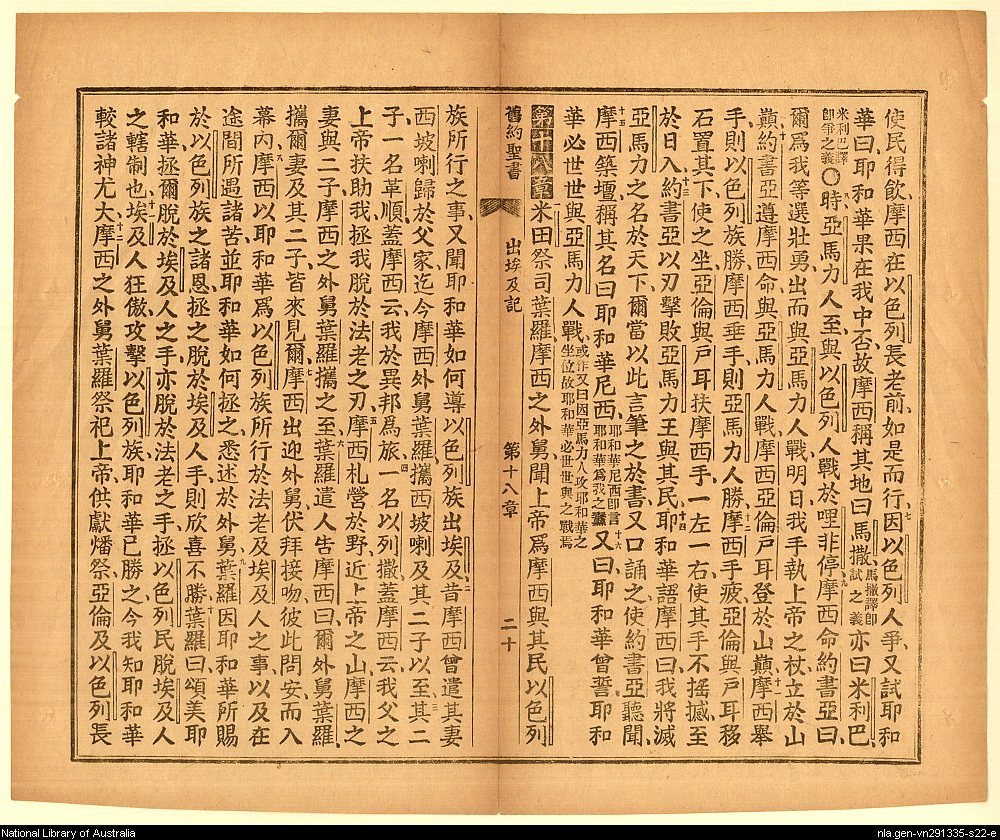 使民得飲摩西在以色列長老前如是而行七因以色列人爭又試耶和
華曰耶和華果在我中否故摩西稱其地曰馬撒馬撒譯即試之義亦曰米利巴
米利巴譯即爭之義〇八時亞馬力人至與以色列人戰於哩非停九摩西命約書亞曰
爾爲我等選壯勇出而與亞馬力人戰明日我手執上帝之杖立於山
巔十約書亞遵摩西命與亞馬力人戰摩西亞倫戶耳登於山巔十一摩西舉
手則以色列族勝摩西垂手則亞馬力人勝十二摩西手疲亞倫與戶耳移
石置其下使之坐亞倫與戶耳扶摩西手一左一右使其手不搖撼至
於日入十三約書亞以刃擊敗亞馬力王與其民十四耶和華語摩西曰我將滅
亞馬力之名於天下爾當以此言筆之於書又口誦之使約書亞聽聞
十五摩西築壇稱其名曰耶和華尼西耶和華尼西即言耶和華爲我之纛十六又曰耶和華曾誓耶和
華必世世與亞馬力人戰或作又曰因亞馬力人攻耶和華之坐位故耶和華必世世與之戰焉
第十八章米田祭司葉羅摩西之外舅聞上帝爲摩西與其民以色列
舊約聖書 出埃及記 第十八章 二十
族所行之事又聞耶和華如何導以色列族出埃及二昔摩西曾遣其妻
西坡喇歸於父家迄今摩西外舅葉羅攜西坡喇及其二子以至三其二
子一名革順蓋摩西云我於異邦爲旅四一名以列撒蓋摩西云我父之
上帝扶助我拯我脫於法老之刃五摩西札營於野近上帝之山摩西之
妻與二子摩西之外舅葉羅攜之至六葉羅遣人告摩西曰爾外舅葉羅
攜爾妻及其二子皆來見爾七摩西出迎外舅伏拜接吻彼此問安而入
幕內八摩西以耶和華爲以色列族所行於法老及埃及人之事以及在
途間所遇諸苦並耶和華如何拯之悉述於外舅九葉羅因耶和華所賜
於以色列族之諸恩拯之脫於埃及人手則欣喜不勝十葉羅曰頌美耶
和華拯爾脫於埃及人之手亦脫於法老之手拯以色列民脫埃及人
之轄制也十一埃及人狂傲攻擊以色列族耶和華已勝之今我知耶和華
較諸神尤大十二摩西之外舅葉羅祭祀上帝供獻燔祭亞倫及以色列長
National Library of Australia
nla.gen-vn291335-s22-e